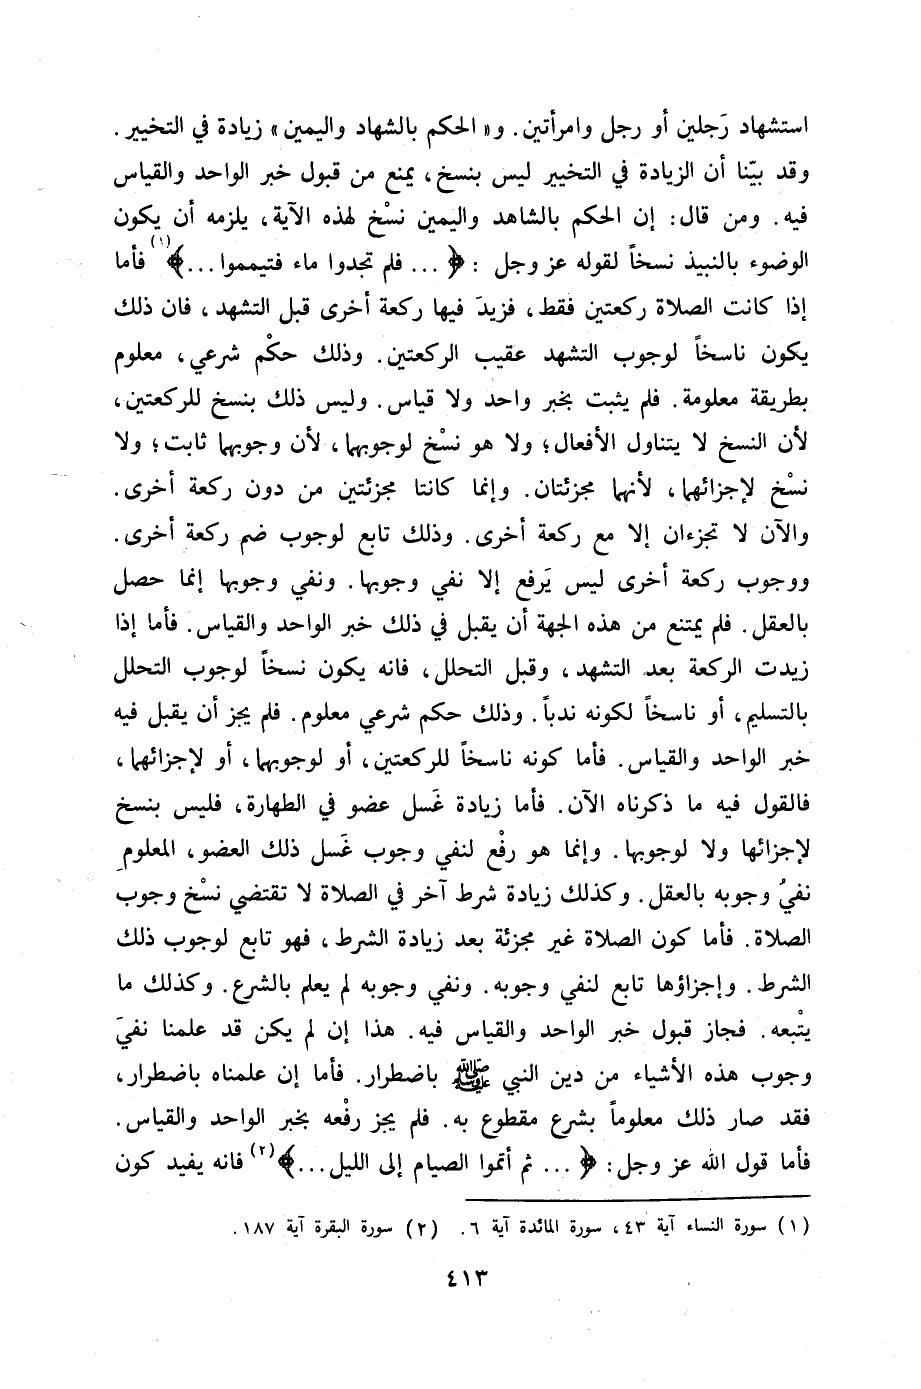 استشهاد رَجلين أو رجل وامرأتين. و« الحكم بالشهاد واليمين» زيادة في التخيير.
وقد بيّنا أن الزيادة في التخيير ليس بنسخ، يمنع من قبول خبر الواحد والقياس
فيه. ومن قال: إن الحكم بالشاهد واليمين نسْخ لهذه الآية، يلزمه أن يكون
الوضوء بالنبيذ نسخاً لقوله عز وجل : ﴿ ... فلم تجدوا ماء فتيمموا ...﴾(١) فأما
إذا كانت الصلاة ركعتين فقط، فزيدَ فيها ركعة أخرى قبل التشهد، فان ذلك
يكون ناسخاً لوجوب التشهد عقيب الركعتين. وذلك حكْم شرعي، معلوم
بطريقة معلومة. فلم يثبت بخبر واحد ولا قياس. وليس ذلك بنسخ للركعتين،
لأن النسخ لا يتناول الأفعال؛ ولا هو نسْخ لوجوبهما، لأن وجوبهما ثابت؛ ولا
نسْخ لإجزائهما، لأنهما مجزئتان. وإنما كانتا مجزئتين من دون ركعة أخرى.
والآن لا تجزءان إلا مع ركعة أخرى. وذلك تابع لوجوب ضم ركعة أخرى.
ووجوب ركعة أخرى ليس يَرفع إلا نفي وجوبها. ونفي وجوبها إنما حصل
بالعقل. فلم يمتنع من هذه الجهة أن يقبل في ذلك خبر الواحد والقياس. فأما إذا
زيدت الركعة بعد التشهد، وقبل التحلل، فانه يكون نسخاً لوجوب التحلل
بالتسليم، أو ناسخاً لكونه ندباً. وذلك حكم شرعي معلوم. فلم يجز أن يقبل فيه
خبر الواحد والقياس. فأما كونه ناسخاً للركعتين، أو لوجوبهما، أو لإجزائهما،
فالقول فيه ما ذكرناه الآن. فأما زيادة غَسل عضو في الطهارة، فليس بنسخ
لإجزائها ولا لوجوبها. وإنما هو رفْع لنفي وجوب غَسل ذلك العضو، المعلومِ
نفيُ وجوبه بالعقل. وكذلك زيادة شرط آخر في الصلاة لا تقتضي نسْخ وجوب
الصلاة. فأما كون الصلاة غير مجزئة بعد زيادة الشرط، فهو تابع لوجوب ذلك
الشرط. وإجزاؤها تابع لنفي وجوبه. ونفي وجوبه لم يعلم بالشرع. وكذلك ما
يتْبعه. فجاز قبول خبر الواحد والقياس فيه. هذا إن لم يكن قد علمنا نفيَ
وجوب هذه الأشياء من دين النبي ﷺ باضطرار. فأما إن علمناه باضطرار،
فقد صار ذلك معلوماً بشرع مقطوع به. فلم يجز رفْعه بخبر الواحد والقياس.
فأما قول الله عز وجل: ﴿ ... ثم أتموا الصيام إلى الليل ...﴾(٢) فانه يفيد كون
(١) سورة النساء آية ٤٣، سورة المائدة آية ٦. (٢) سورة البقرة آية ١٨٧.
٤١٣